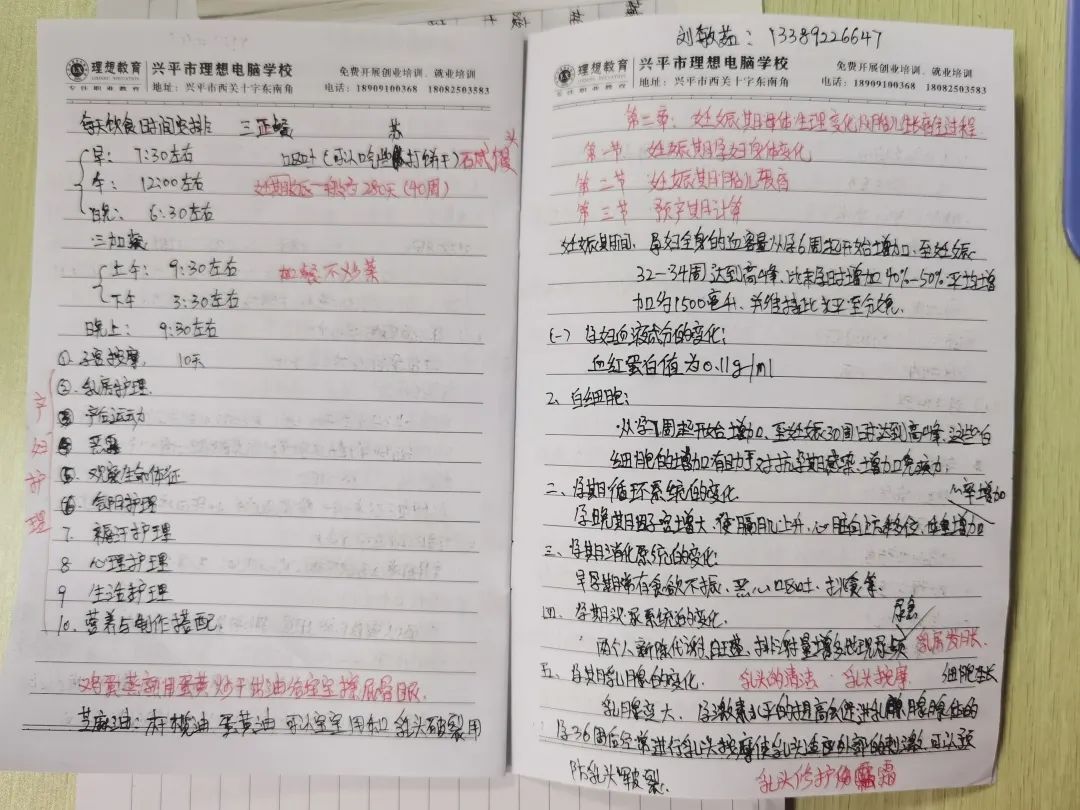 理想教育 兴平市理想电脑学校 免费开展创业培训、就业培训
专注职业教育 地址：兴平市西关十字东南角 电话：18909100368 18082503583
每天饮食时间安排 三正餐
早： 7:30左右 呕吐（可以吃些苏打饼干）
午： 12:00左右 妊娠期一般为280天（40周）
晚： 6:30左右
三加餐
上午： 9:30左右 加餐不炒菜
下午 3:30左右
晚上： 9:30左右
① 子宫按摩 10天
②. 乳房护理
③ 产后运动
④ 恶露
⑤. 观察生命体征
⑥. 会阴护理
7. 褥汗护理
8 心理护理
9 生活护理
10. 营养与制作搭配.
产妇护理
鸡蛋蒸
芝麻油：橄榄油 蛋黄油 可以宝宝用和 乳头破裂用
刘敏茹：13389226647
理想教育 兴平市理想电脑学校 免费开展创业培训、就业培训
专注职业教育 地址：兴平市西关十字东南角 电话：18909100368 18082503583
第二章： 妊娠期母体生理变化及胎儿生长发育过程
第一节 妊娠期孕妇身体变化
第二节 妊娠期胎儿发育
第三节 预产期计算
妊娠期间，孕妇全身的血容量从孕6周起开始增加，至妊娠
32-34周达到高峰，比未孕时增加40%-50%平均增
加约1500毫升，并维持此水平至分娩.
(一) 孕妇血液成分的变化：
血红蛋白值为0.11g/ml
2、白细胞：
从孕7周起开始增加，至妊娠30周时达到高峰，这些白
细胞的增加有助于对抗孕期感染，增加免疫力.
二、孕期循环系统的变化 心率增加
孕晚期因子宫增大，使膈肌上升，心脏向上移位，体重增加
三、孕期消化系统的变化
早孕期常有食欲不振、恶心呕吐、挑食等.
四、孕期泌尿系统的变化.
两个人新陈代谢旺盛，排泄量增多出现尿频 乳房发育长.
五、孕期乳腺的变化. 乳头的清洁 乳头按摩 细胞生长
乳腺变大，孕激素水平的提高促进乳腺腺体的
孕36周后经常进行乳头按摩使乳头适应外部的刺激，可以预
防乳头皲裂. 乳头修护霜